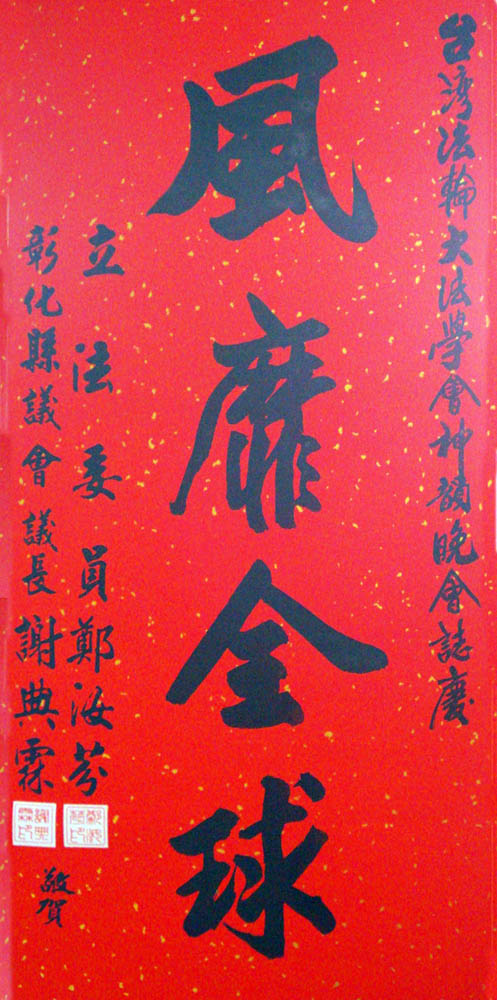 台湾法輪大法學會神韻晚會誌慶
風靡全球
立法委員鄭汝芬
彰化縣議會議長謝典霖
敬賀